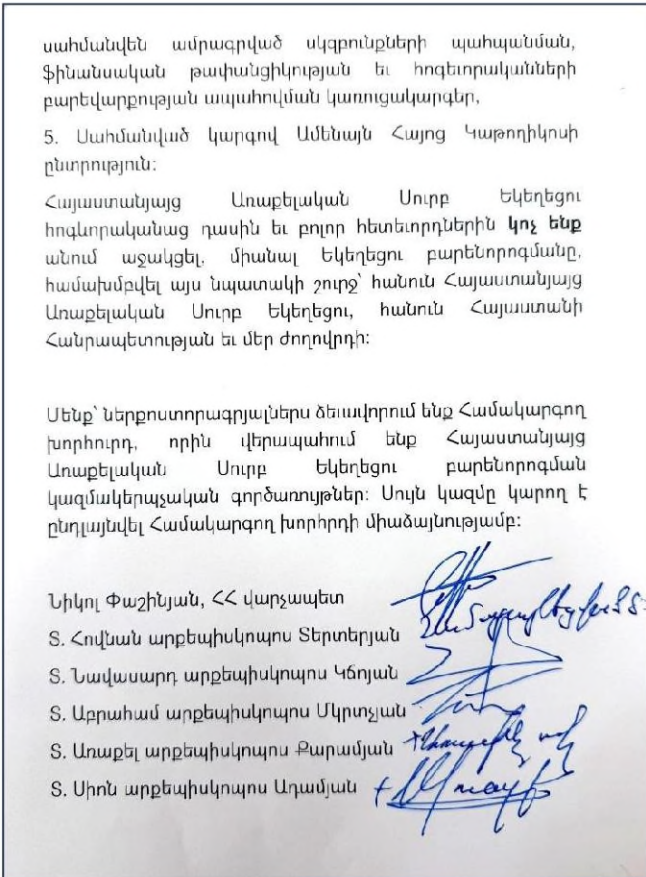 սահմանվեն ամրագրված սկզբունքների պահպանման,
ֆինանսական թափանցիկության եւ հոգեւորականների
բարեվարքության ապահովման կառուցակարգեր,
5. Սահմանված կարգով Ամենայն Հայոց Կաթողիկոսի
ընտրություն:
Հայաստանյայց Առաքելական Սուրբ Եկեղեցու
հոգևորականաց դասին եւ բոլոր հետեւորդներին կոչ ենք
անում աջակցել, միանալ Եկեղեցու բարենորոգմանը,
համախմբվել այս նպատակի շուրջ՝ հանուն Հայաստանյայց
Առաքելական Սուրբ Եկեղեցու, հանուն Հայաստանի
Հանրապետության եւ մեր ժողովրդի:
Մենք՝ ներքոստորագրյալներս ձեւավորում ենք Համակարգող
խորհուրդ, որին վերապահում ենք Հայաստանյայց
Առաքելական Սուրբ Եկեղեցու բարենորոգման
կազմակերպչական գործառույթներ: Սույն կազմը կարող է
ընդլայնվել Համակարգող խորհրդի միաձայնությամբ:
Նիկոլ Փաշինյան, ՀՀ վարչապետ
Տ. Հովնան արքեպիսկոպոս Տերտերյան
Տ. Նավասարդ արքեպիսկոպոս Կճոյան
Տ. Աբրահամ արքեպիսկոպոս Մկրտչյան
Տ. Առաքել արքեպիսկոպոս Քարամյան
Տ. Սիոն արքեպիսկոպոս Ադամյան